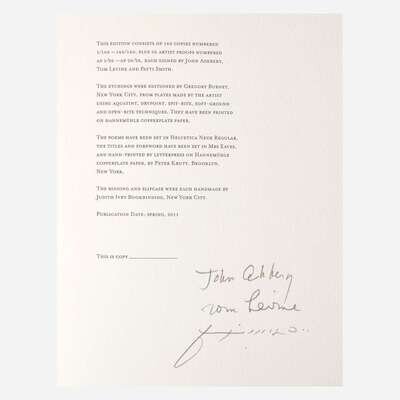 This edition consists of 100 copies numbered
each signed by John Ashbery,
Tom Levine and Patti Smith.
The etchings were editioned by Gregory Burnet,
New York City, from plates made by the artist
using aquatint, drypoint, spit-bite, soft-ground
and open-bite techniques. They have been printed
on Hahnemühle copperplate paper.
The poems have been set in Helvetica Neue Regular,
the titles and foreword have been set in Mrs Eaves,
and hand-printed by letterpress on Hahnemühle
copperplate paper, by Peter Kruty, Brooklyn,
New York.
The binding and slipcase were each handmade by
Judith Ivry Bookbinding, New York City.
Publication Date: Spring, 2011
This is copy
John Ashbery
Tom Levine